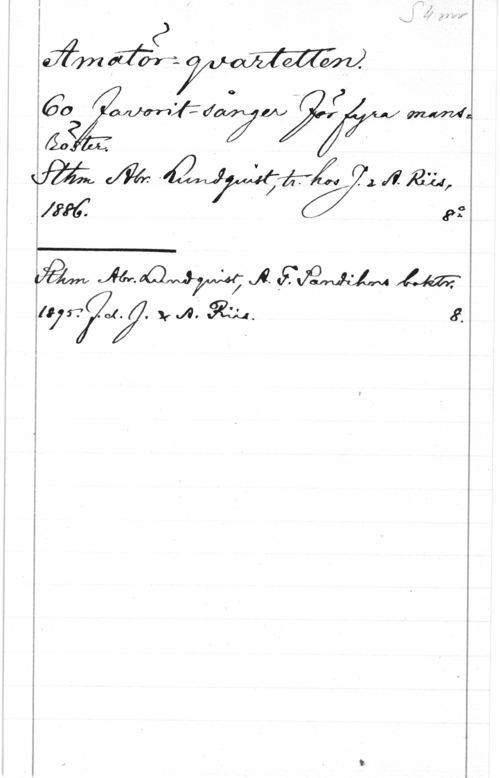 S4mv
Amatör-qvartetten.
60 favorit-sånger för fyra mans-
röster.
Sthm Abr. Lundquist, tr. hos J. & A. Riis,
1886. 8º
Sthm Abr. Lundquist, A. F. Sandihns boktr.
1895. J. & A. Riis. 8.